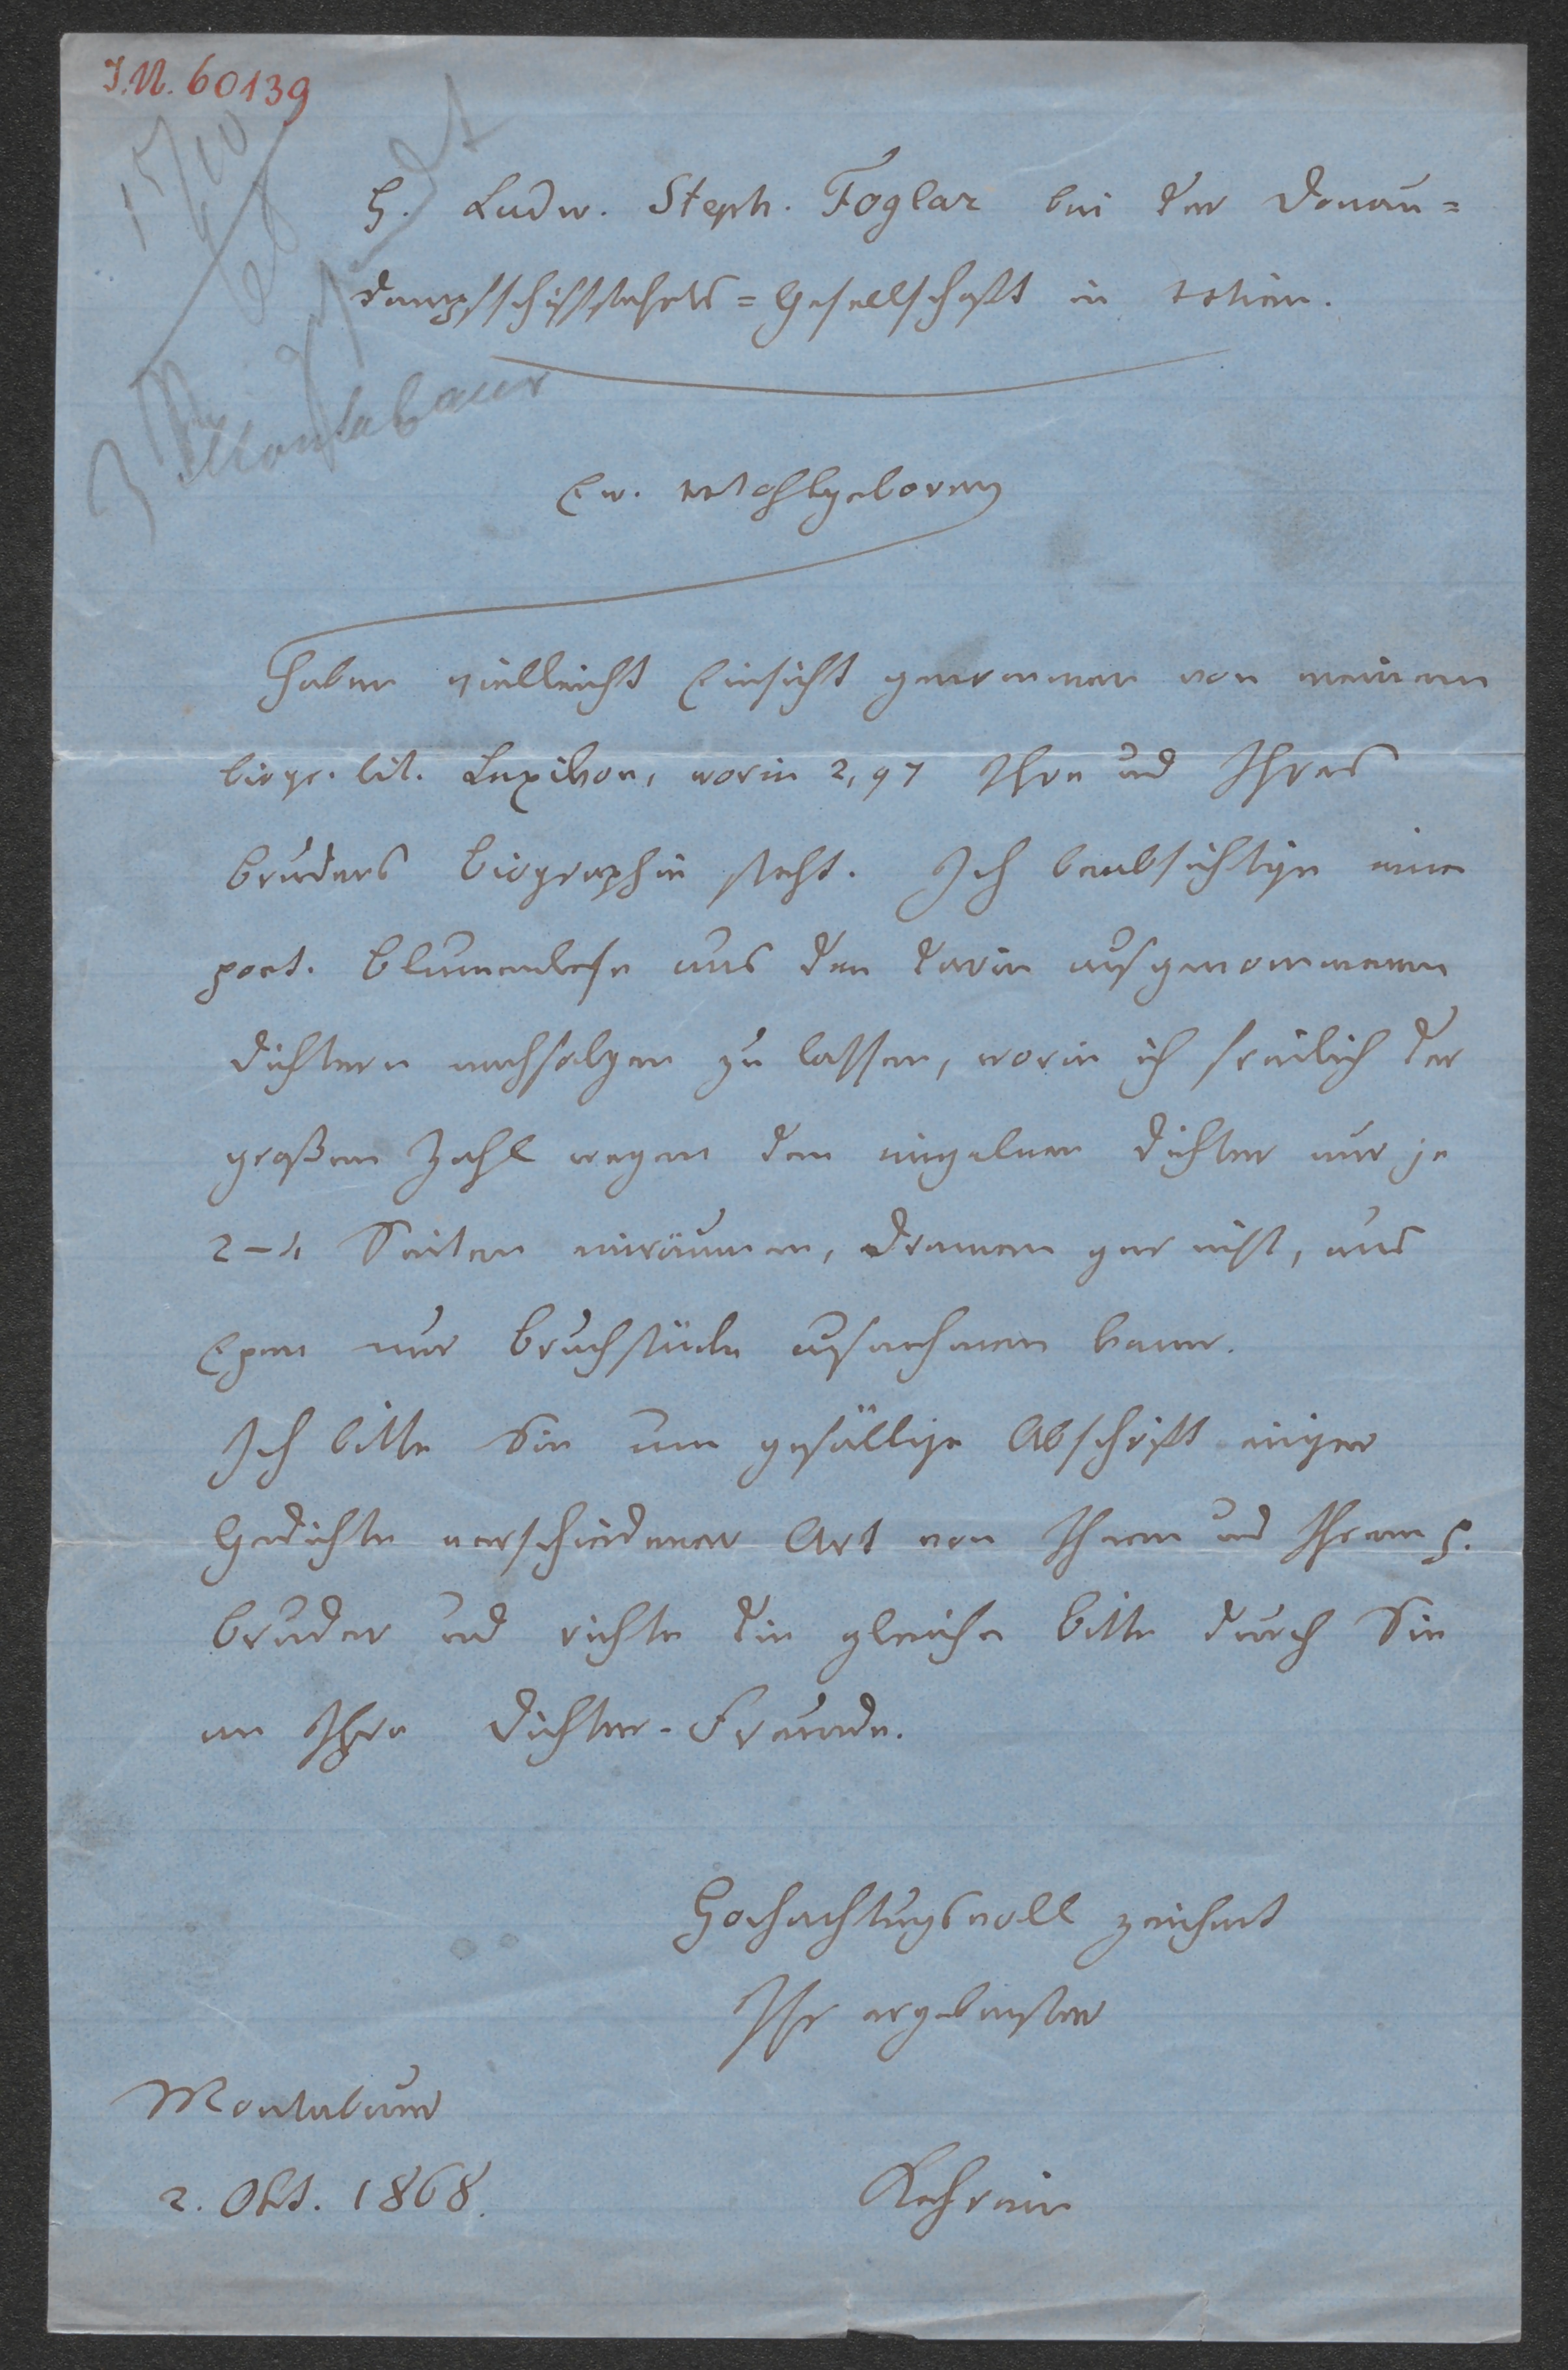 I.N. 60139
15/10
H. Ludw. Steph. Foglar bei der Donau=
dampfschifffahrts=Gesellschaft in Wien.
Montabaur
Ew. Wohlgeboren
haben vielleicht Einsicht genommen von meinem
biogr. lit. Lexikon, worin 2, 97 Ihre und Ihres
Bruders Biographie steht. Ich beabsichtige eine
poet. Blumenlese aus den darin aufgenommenen
Dichtern nachfolgen zu lassen, worin ich freilich der
großen Zahl wegen dem einzelnen Dichter nur je
2–4 Seiten einräumen, Dramen gar nicht, aus
Epen nur Bruchstücke aufnehmen kann.
Ich bitte Sie um gefällige Abschrift einiger
Gedichte verschiedener Art von Ihnen und Ihrem H.
Bruder und richte die gleiche Bitte durch Sie
an Ihre Dichter-Freunde.
Hochachtungsvoll zeichnet
Ihr ergebenster
Montabaur
2. Okt. 1868.
Kehrein